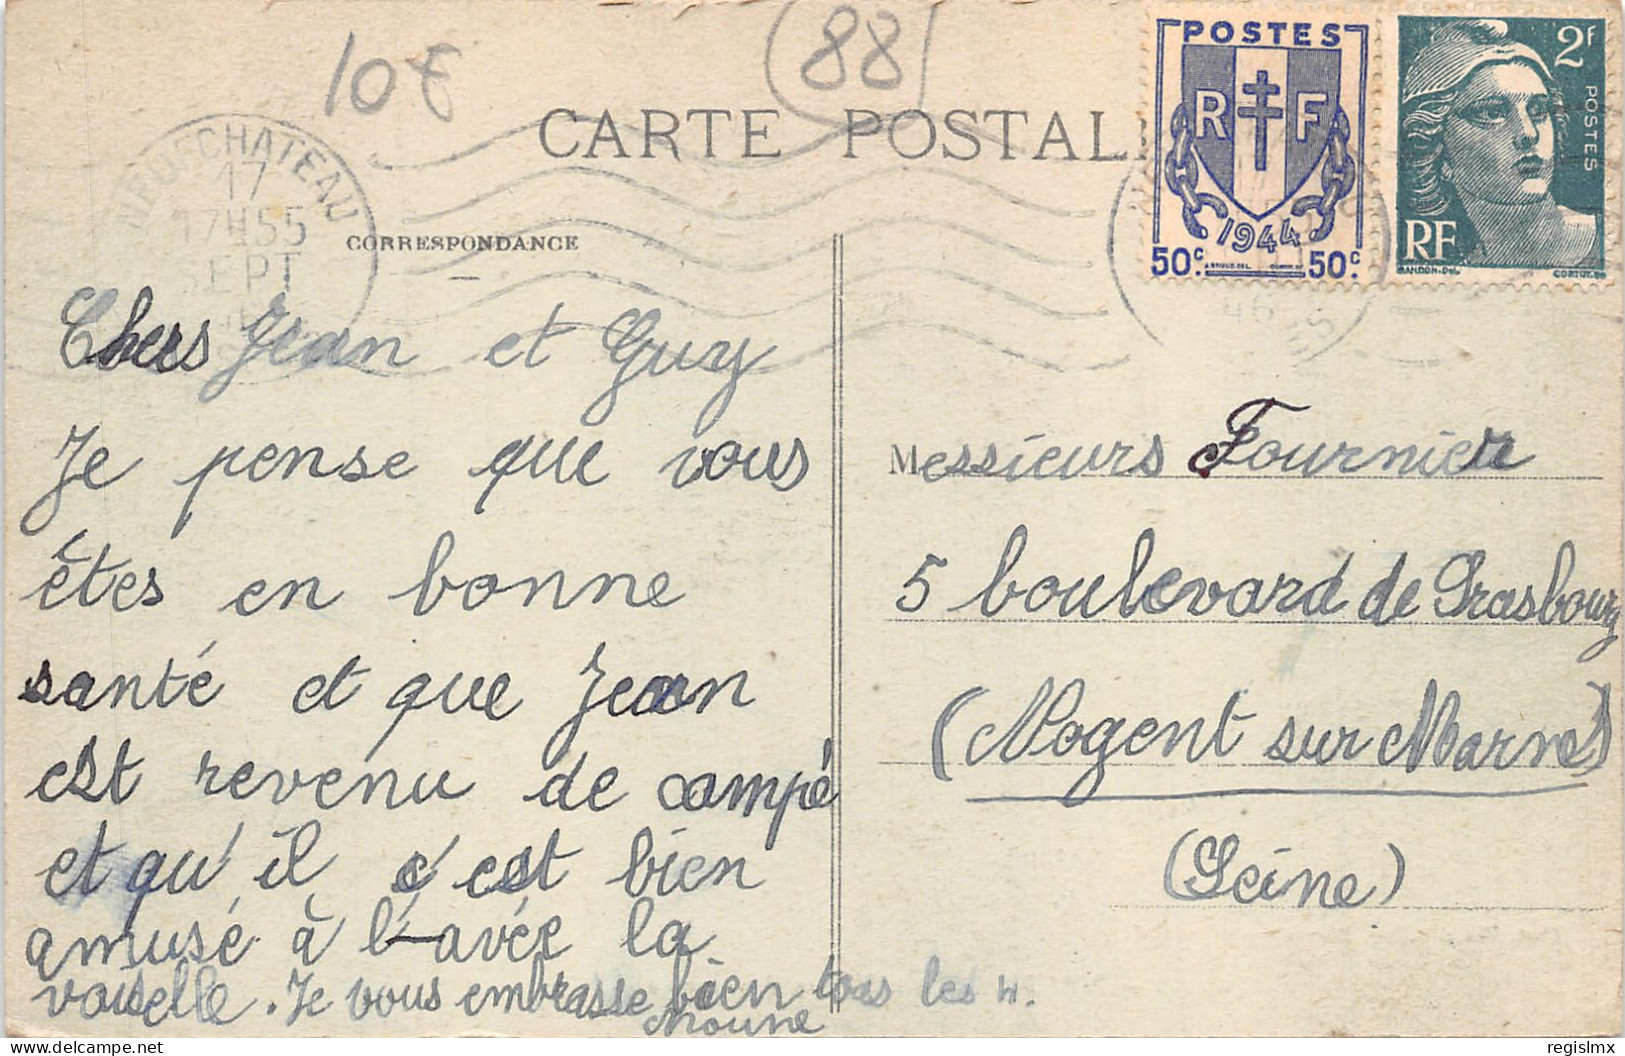 10€
(88)
CARTE POSTAL
POSTES
R F
1944
50c. 50c.
2f
POSTES
RF
NEUFCHATEAU
17
17H55
SEPT
46
CORRESPONDANCE
Chers Jean et Guy
Je pense que vous
êtes en bonne
santé et que Jean
est revenu de campé
et qu'il c'est bien
amusé à l'avée la
vaiselle. Je vous embrasse bien tous les 4.
Moune
Messieurs Fournier
5 boulevard de Strasbourg
(Nogent sur Marne)
(Seine)
regislmx
delcampe.net